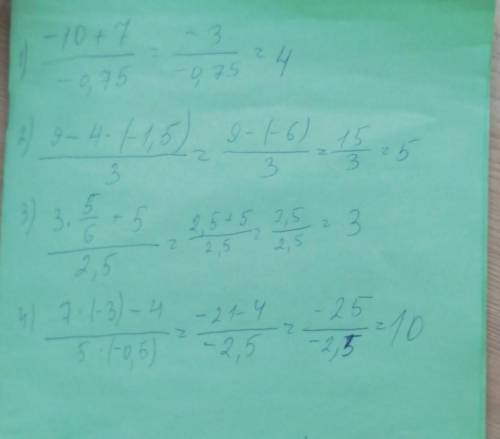 1) (-10+7)/(-0,75) = (-3)/(-0,75) = 4
2) (9-4·(-1,5))/3 = (9-(-6))/3 = 15/3 = 5
3) (3·5/6+5)/2,5 = (2,5+5)/2,5 = 7,5/2,5 = 3
4) (7·(-3)-4)/(5·(-0,5)) = (-21-4)/(-2,5) = (-25)/(-2,5) = 10